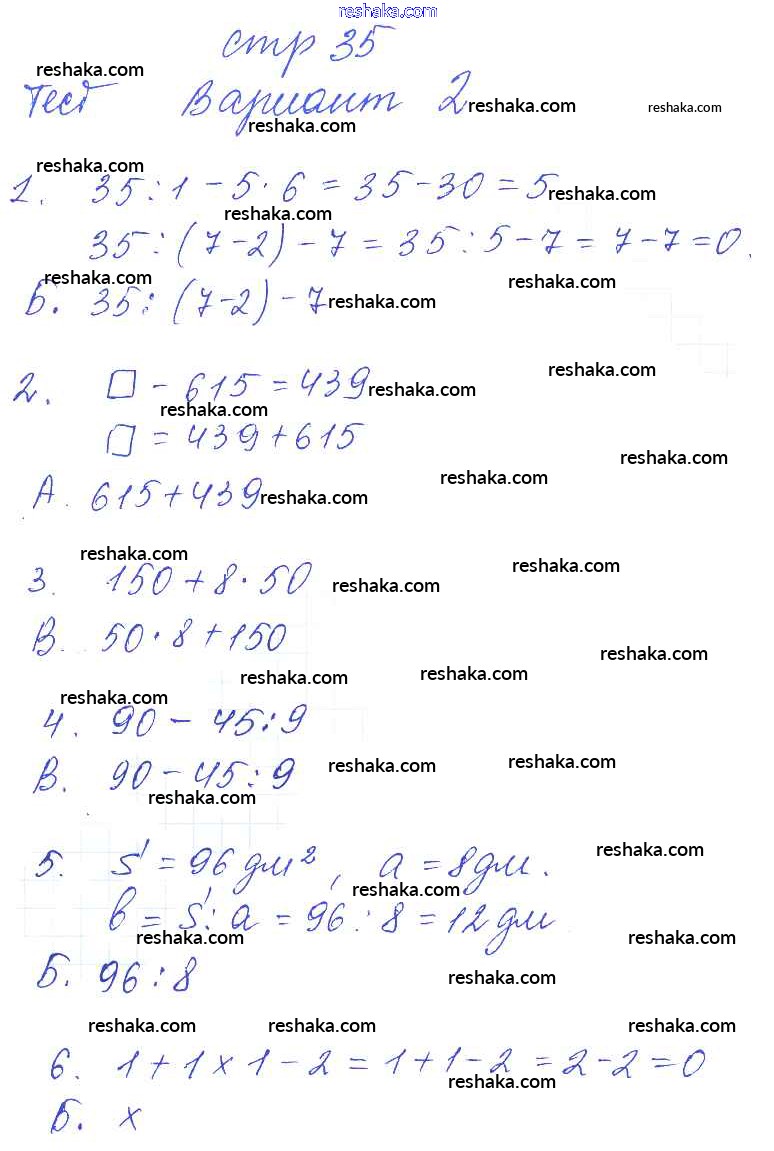 reshaka.com
стр 35
reshaka.com
Тест Вариант 2 reshaka.com reshaka.com
reshaka.com
reshaka.com
1. 35 : 1 - 5 · 6 = 35 - 30 = 5 reshaka.com
reshaka.com
35 : (7 - 2) - 7 = 35 : 5 - 7 = 7 - 7 = 0.
reshaka.com reshaka.com
Б. 35 : (7 - 2) - 7 reshaka.com
reshaka.com
2. □ - 615 = 439 reshaka.com
reshaka.com
□ = 439 + 615
reshaka.com
reshaka.com
А. 615 + 439 reshaka.com
reshaka.com reshaka.com
3. 150 + 8 · 50 reshaka.com
В. 50 · 8 + 150 reshaka.com
reshaka.com reshaka.com
reshaka.com
4. 90 - 45 : 9
В. 90 - 45 : 9 reshaka.com reshaka.com
reshaka.com
5. S = 96 дм², a = 8 дм. reshaka.com
reshaka.com
b = S : a = 96 : 8 = 12 дм
reshaka.com reshaka.com
Б. 96 : 8 reshaka.com
reshaka.com reshaka.com reshaka.com
6. 1 + 1 × 1 - 2 = 1 + 1 - 2 = 2 - 2 = 0
reshaka.com
Б. ×